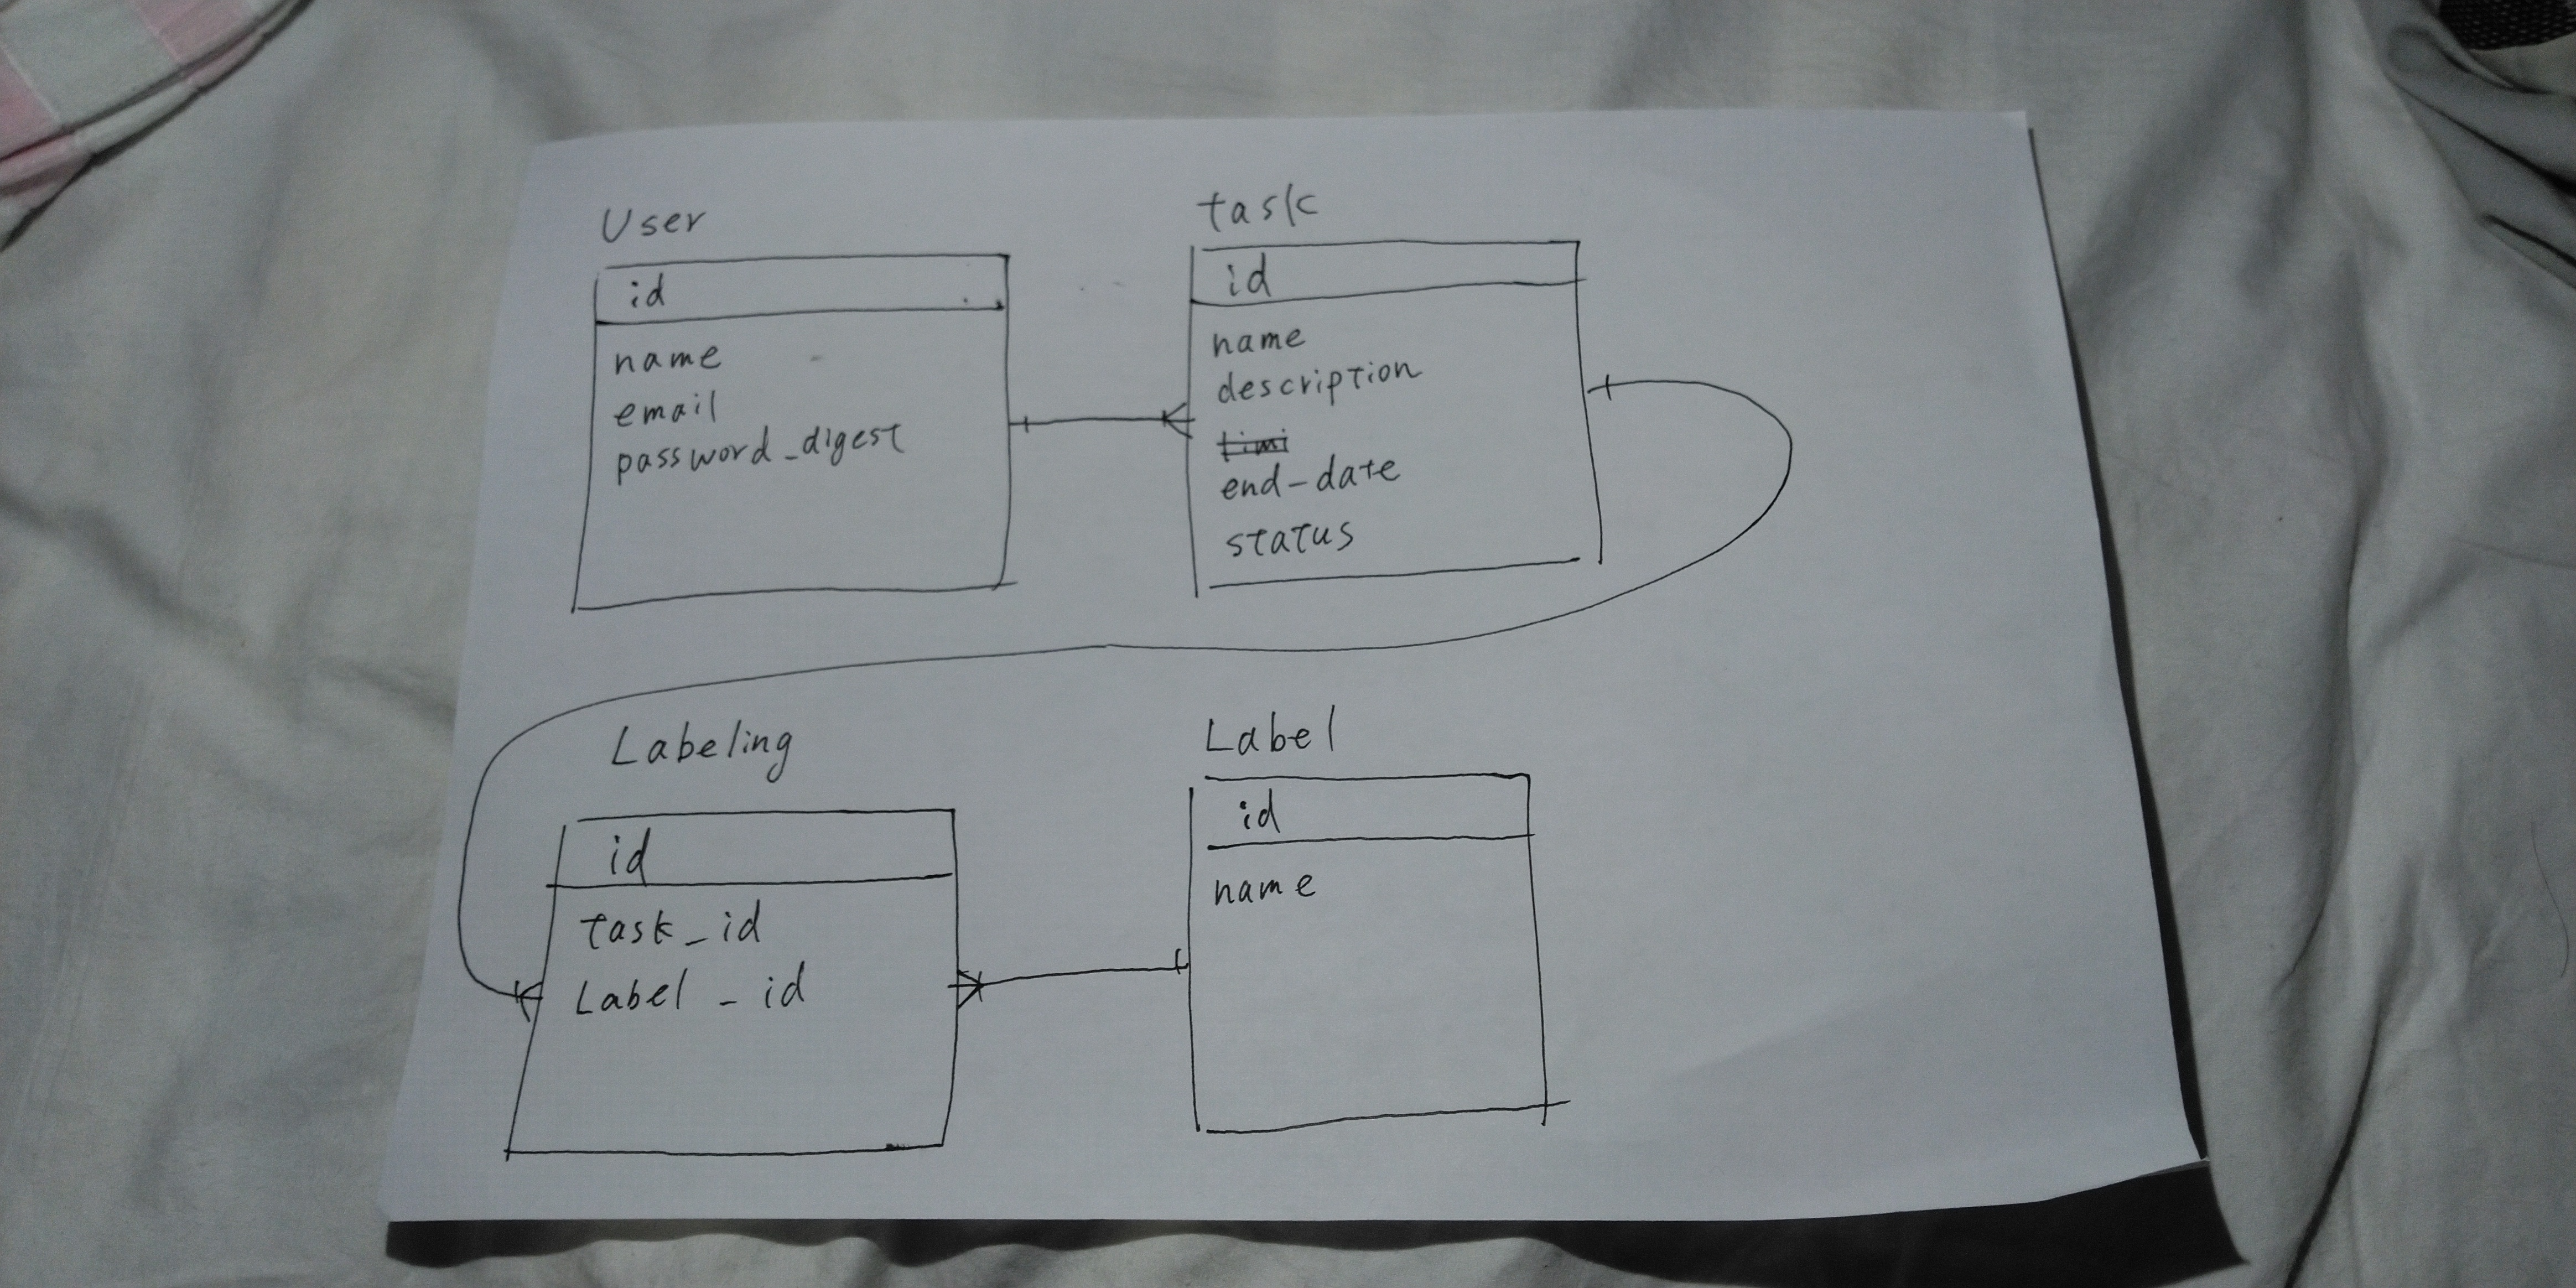 User
id
name
email
password_digest
task
id
name
description
end-date
status
Labeling
id
task_id
Label_id
Label
id
name